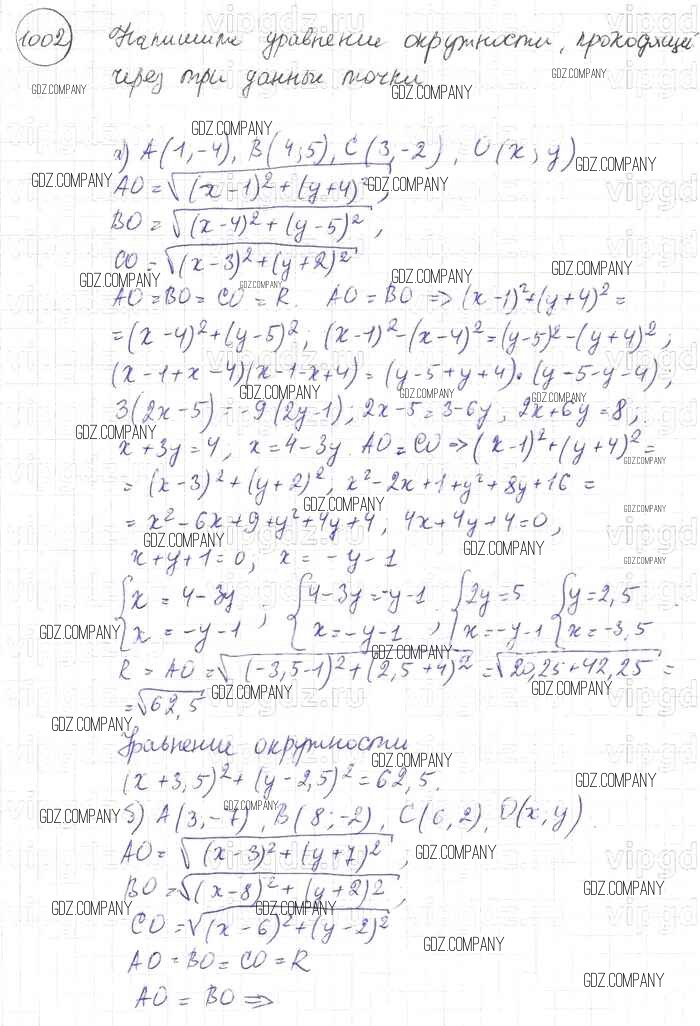 1002) Напишите уравнение окружности, проходящей
через три данные точки
а) A(1,-4), B(4;5), C(3,-2), O(x;y)
AO = √((x-1)²+(y+4)²,
BO = √(x-4)²+(y-5)²,
CO = √(x-3)²+(y+2)²
AO=BO=CO=R. AO=BO ⇒ (x-1)²+(y+4)²=
=(x-4)²+(y-5)²; (x-1)²-(x-4)²=(y-5)²-(y+4)²;
(x-1+x-4)(x-1-x+4)=(y-5+y+4)·(y-5-y-4);
3(2x-5)=-9(2y-1); 2x-5=3-6y, 2x+6y=8;
x+3y=4, x=4-3y. AO=CO ⇒ (x-1)²+(y+4)²=
=(x-3)²+(y+2)², x²-2x+1+y²+8y+16=
=x²-6x+9+y²+4y+4, 4x+4y+4=0,
x+y+1=0, x=-y-1
{x=4-3y {4-3y=-y-1 {2y=5 {y=2,5
{x=-y-1; {x=-y-1, {x=-y-1 {x=-3,5
R=AO=√(-3,5-1)²+(2,5+4)²=√20,25+42,25=
=√62,5
Уравнение окружности
(x+3,5)²+(y-2,5)²=62,5.
б) A(3,-7), B(8;-2), C(6,2), O(x,y).
AO=√(x-3)²+(y+7)²,
BO=√(x-8)²+(y+2)2,
CO=√(x-6)²+(y-2)²
AO=BO=CO=R
AO=BO⇒
GDZ.COMPANY
vipgdz.ru